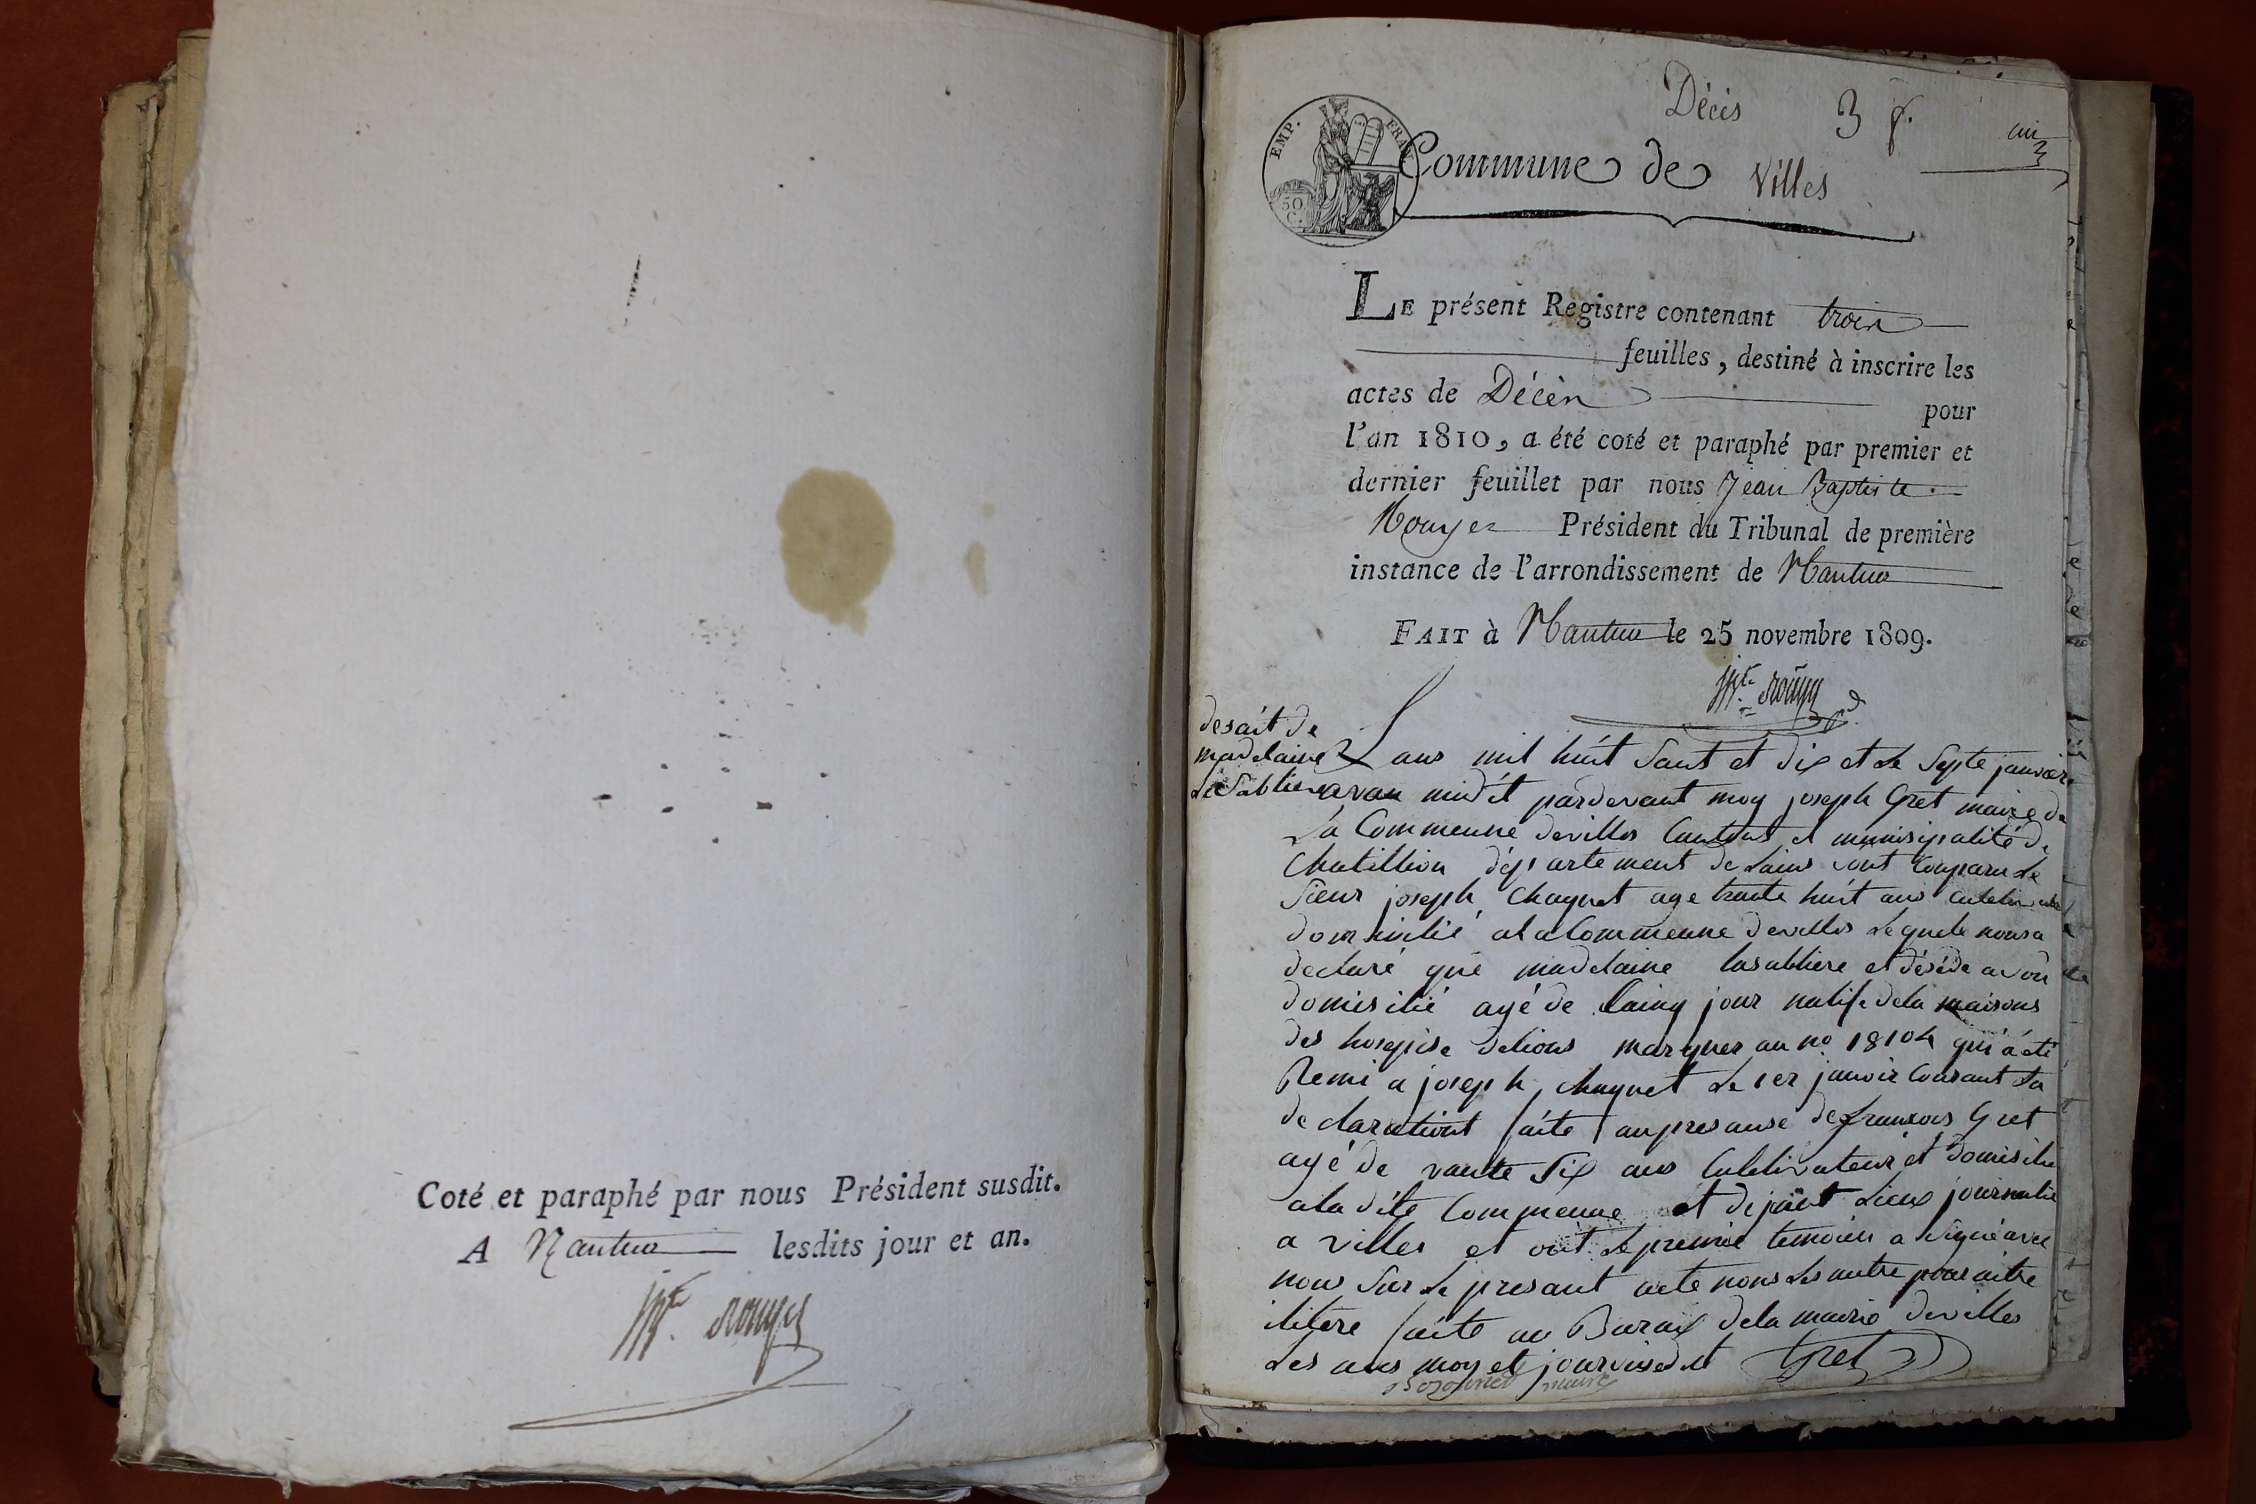 Coté et paraphé par nous Président susdit.
A Nantua lesdits jour et an.
Jn Bte Rouyer
Décès 3 f.
EMP. FRAN.
50
C.
Commune de Villes
LE présent Registre contenant trois
feuilles, destiné à inscrire les
actes de Décès pour
l'an 1810, a été coté et paraphé par premier et
dernier feuillet par nous Jean Baptiste
Rouyer Président du Tribunal de première
instance de l'arrondissement de Nantua
FAIT à Nantua le 25 novembre 1809.
Rouyer
desait de
madelaine
La Sabliere
L ans mil huit Sant et dix et Le Septe janvier
avan midit pardevant moy joseph Gret maire de
La Commeune devilles Cantons et munisipalité de
Chatillion département de Lains ont Conparu Le
Sieur joseph Chaquet age trante huit ans
domisilié ala Commeune devilles Lequele nous a
declaré que madelaine lasabliere et déséde
domisilié agé de Cainq jour natife dela maisons
des hospise delions marquer au no 18104 qui a été
Remi a joseph Chaquet Le 1er janvir Courant La
declarationt faite anpresanse de fransois Gret
agé de vante Six ans Culetivateur et domisilie
ala dite Commeune et dijont Lieux journalié
a villes et ont Le premié temoien a Signé avec
nous Sur Le presant acte nons Les autre pour aitre
ilitére faite au Buraux dela mairie devilles
Les ans moy et jour Gret
maire